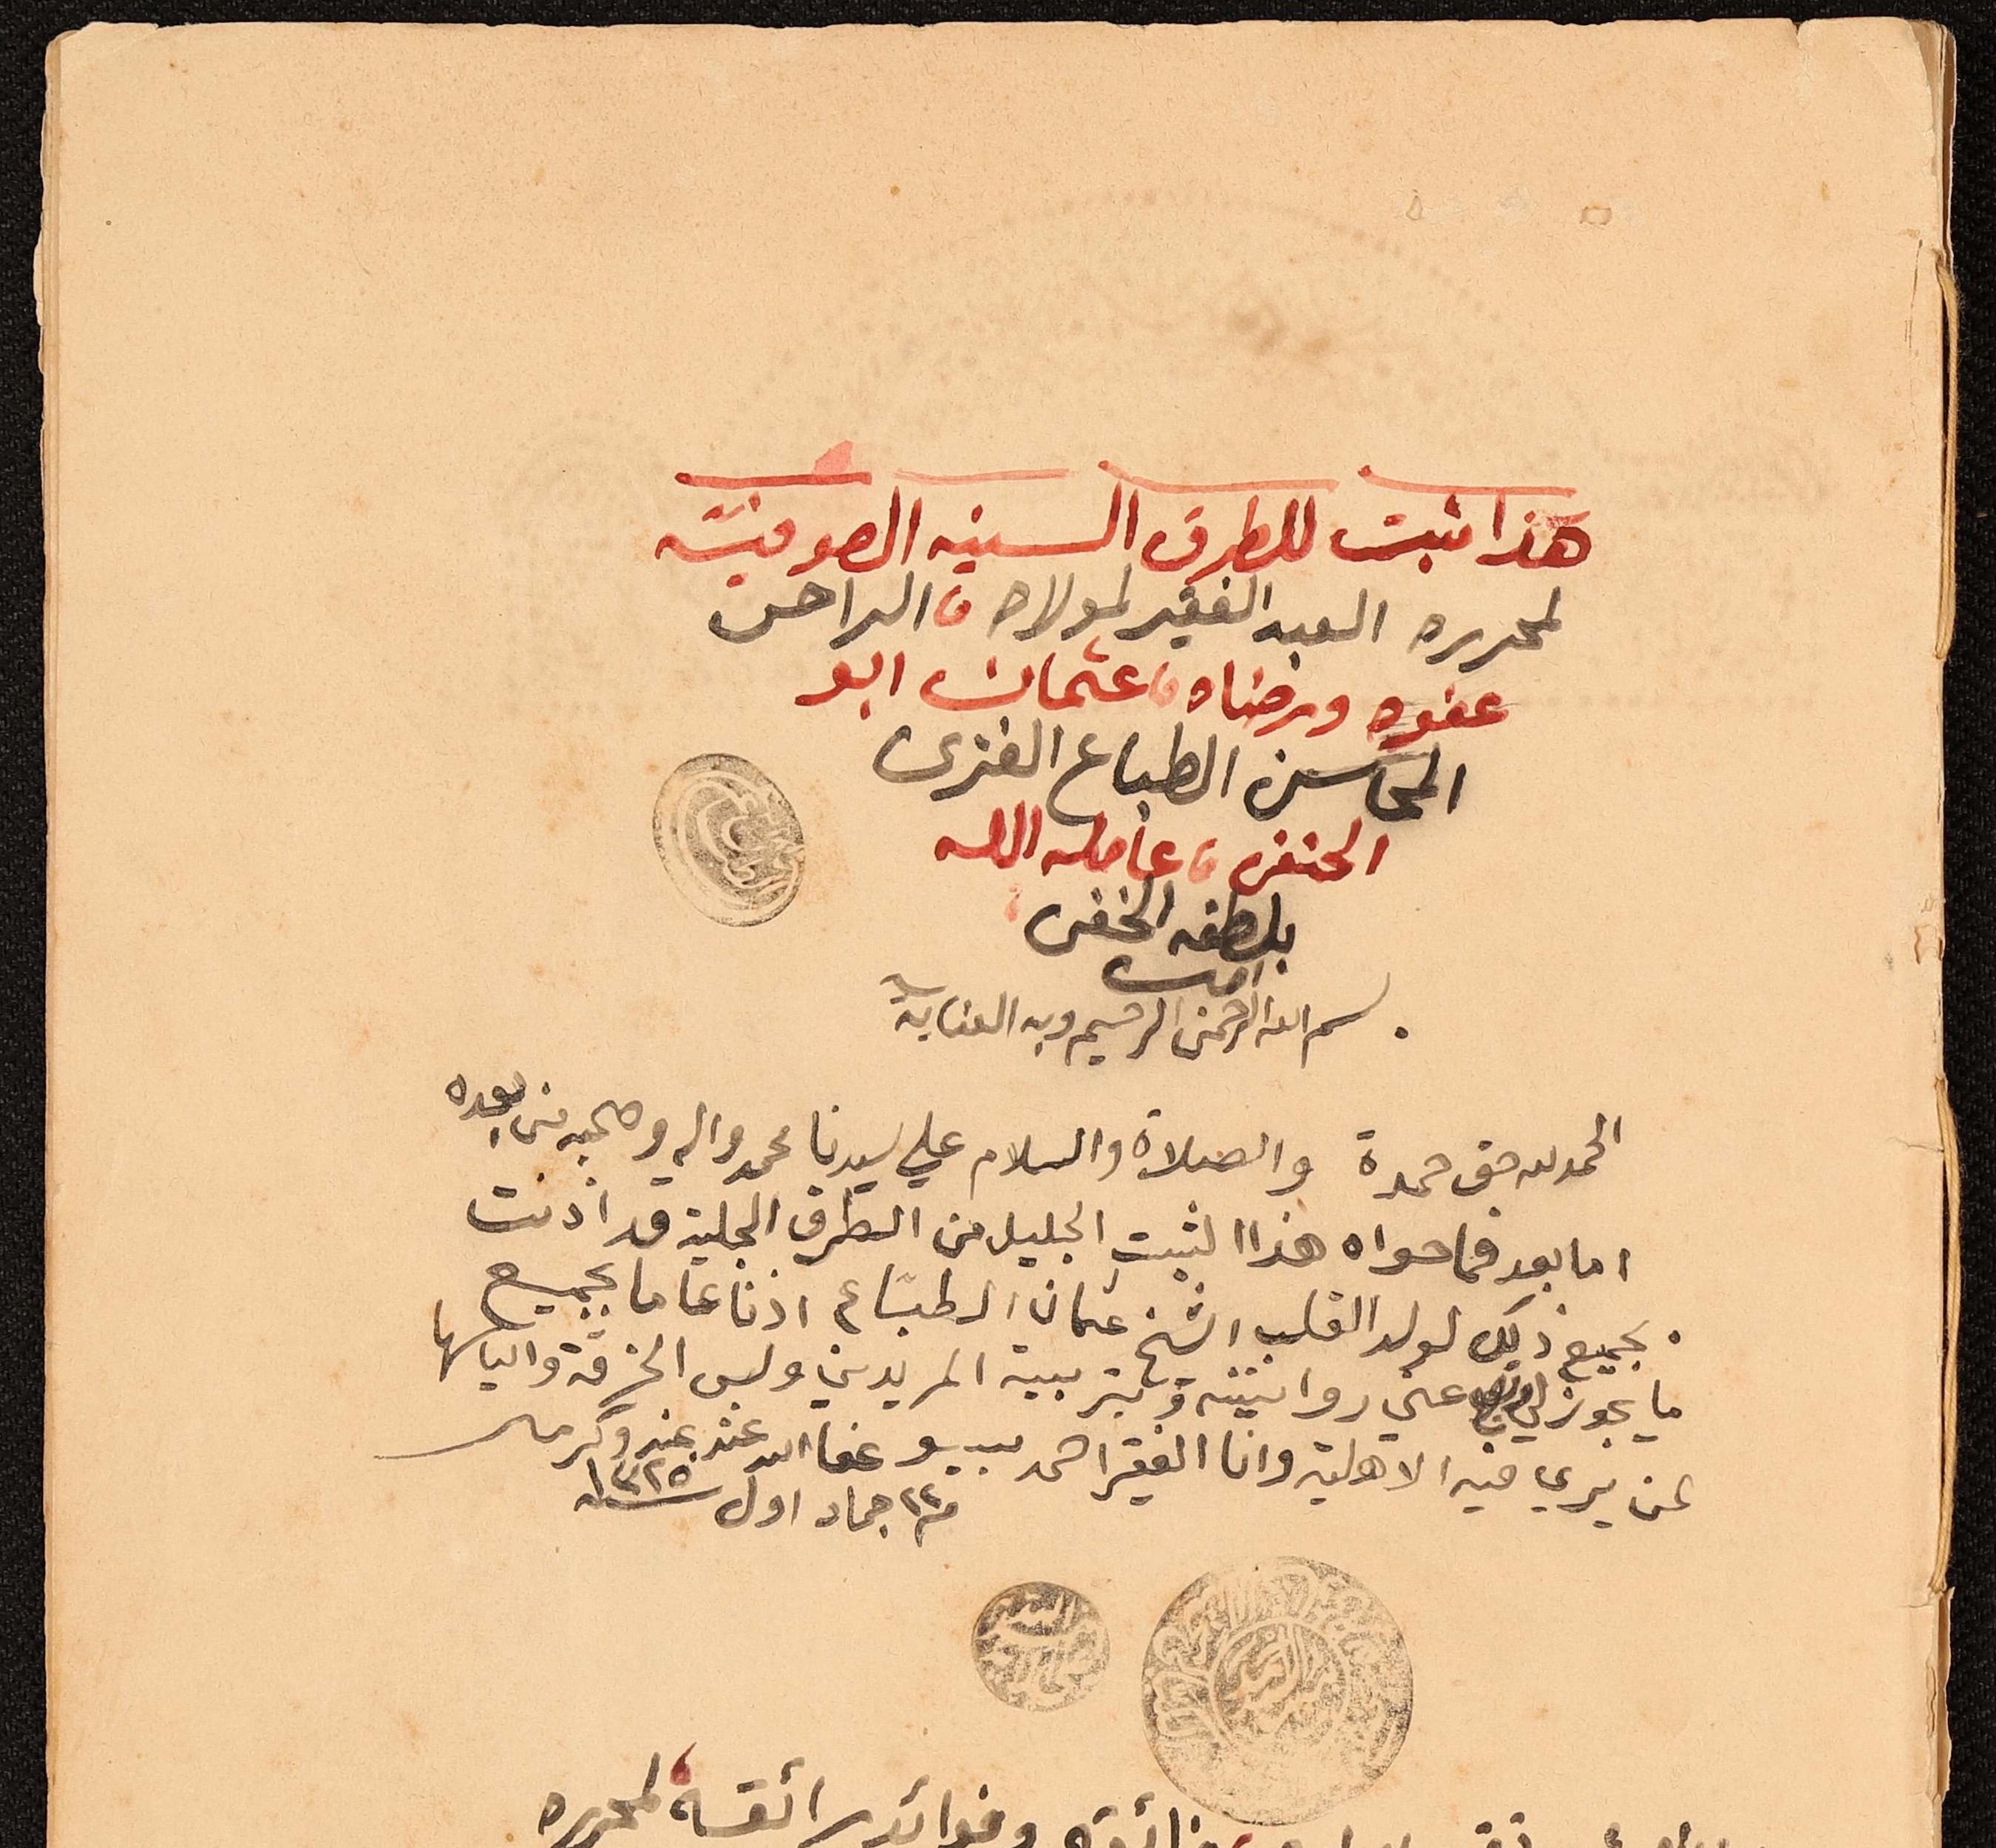 هذا ثبت للطرق السنيه الصوفيّه
لمحرره العبد الفقير لمولاه ، الراجى
عفوه ورضاه ، عثمان ابو
المحاسن الطباع الغزى
الحنفى ، عامله الله
بلطفه الخفى
امين
بسم الله الرحمن الرحيم وبه العناية
الحمد لله حق حمدة والصلاة والسلام علي سيدنا محمد واله وصحبه من بعده
اما بعد فما حواه هذا الثبت الجليل من الطرق الجلية قد اذنت
بجميع ذلك لولد القلب الشيخ عثمان الطبّاع اذنا عاما بجميع
ما يجوز لي عني روايتيه وبتربية المريدين ولبس الخرقة والباسها
لمن يري فيه الاهلية وانا الفقير احمد بسيسو عفا الله عنه بمنه وكرمه
في ٢٢ جماد اول سنة ١٣٢٥
وفوائد رائقة لمحرره